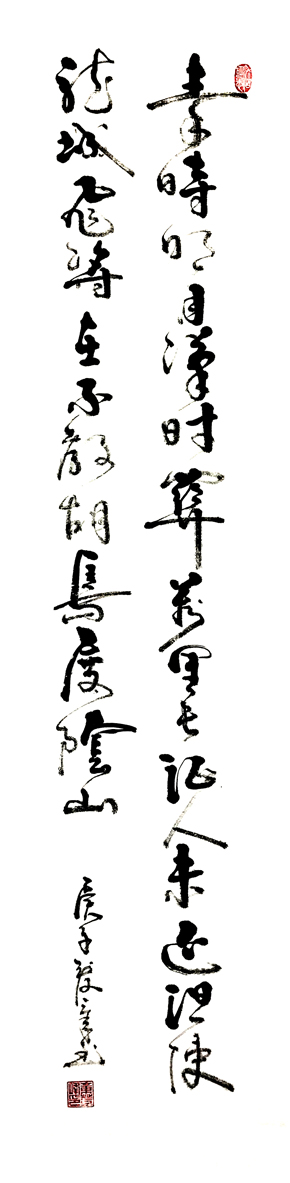 秦時明月漢时關萬里长征人未還但使
龍城飛將在不教胡馬度陰山
庚子